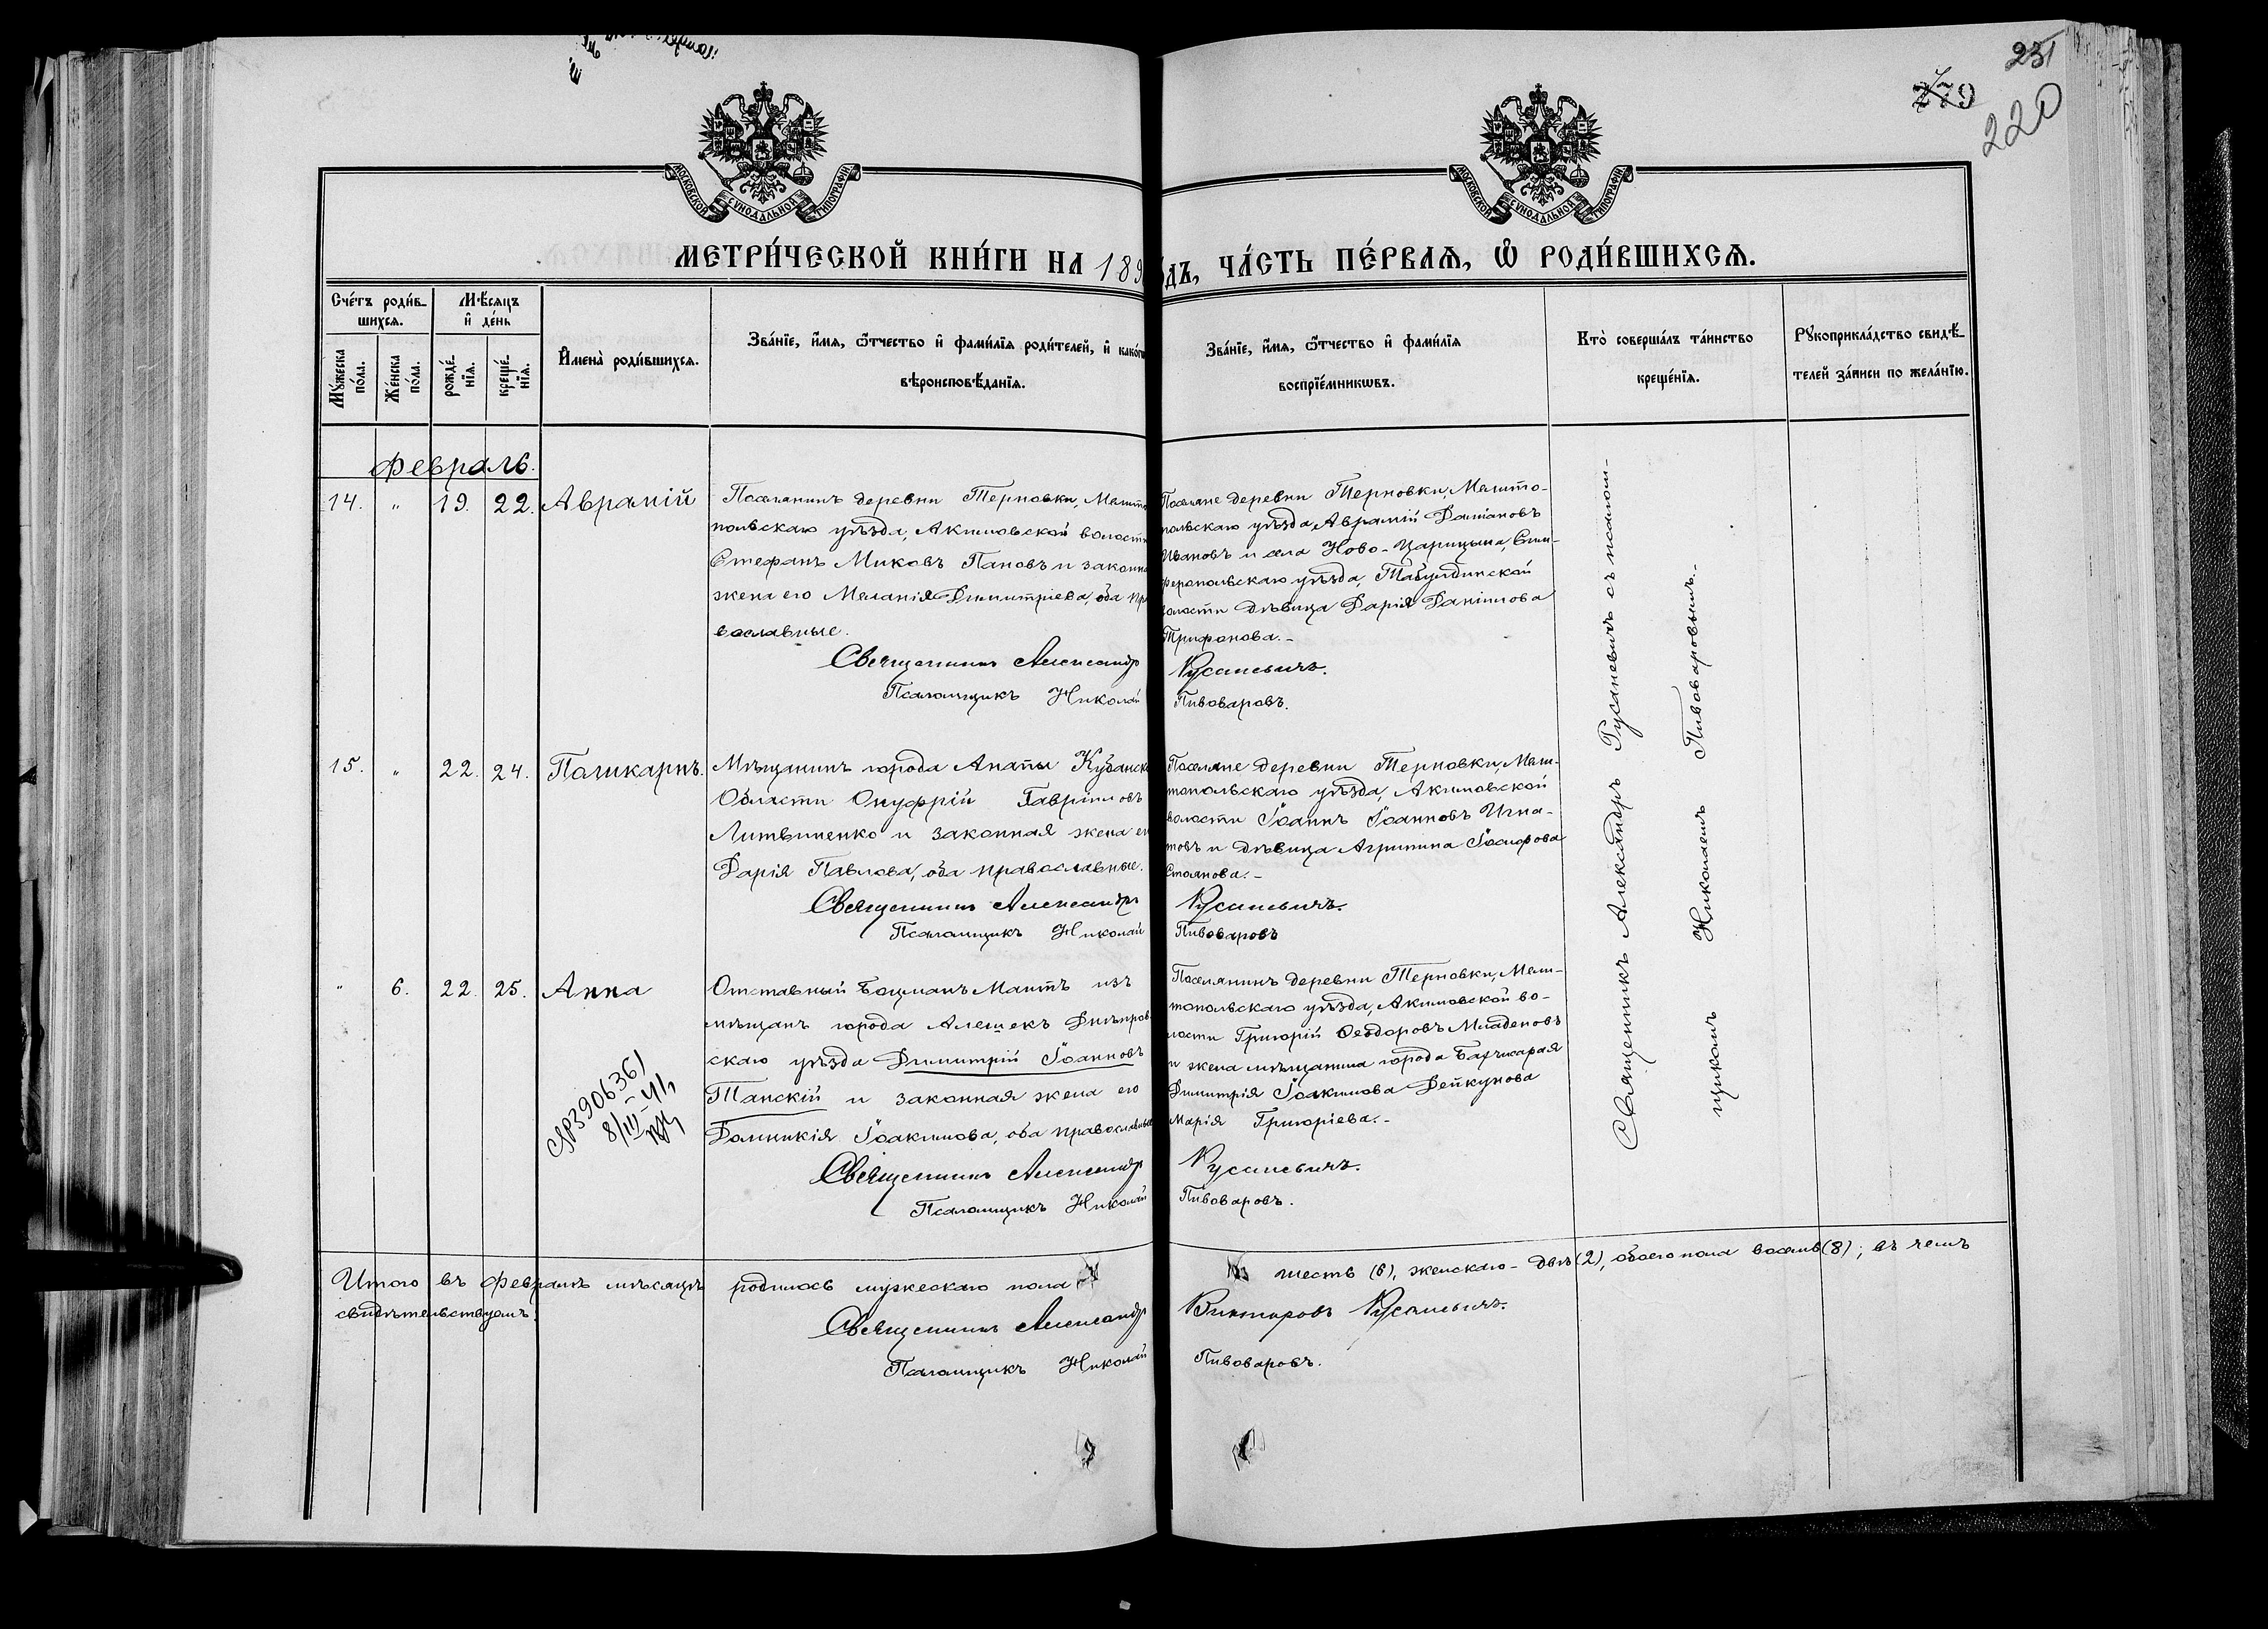 231
279
220
МОСКОВСКОЙ СѴНОДАЛЬНОЙ ТИПОГРАФІИ
МОСКОВСКОЙ СѴНОДАЛЬНОЙ ТИПОГРАФІИ
МЕТРИ́ЧЕСКОЙ КНИ́ГИ НА 189
ДЪ, ЧА́СТЬ ПЕ́РВАѦ, Ѿ РОДИ́ВШИХСѦ.
Сче́тъ роди́в-
шихсѧ.
Мꙋ́жеска по́ла.
Же́нска по́ла.
Мѣ́сѧцъ и҆ де́нь
рожде́-нїѧ.
креще́-нїѧ.
И҆мена̀ роди́вшихсѧ.
Зва́нїе, и҆́мѧ, ѻ҆́тчество и҆ фами́лїѧ роди́телей, и҆ како́гѡ
вѣроисповѣ́данїѧ.
Зва́нїе, и҆́мѧ, ѻ҆́тчество и҆ фами́лїѧ
воспрїе́мникѡвъ.
Кто̀ соверша́лъ та́инство
креще́нїѧ.
Рꙋкоприкла́дство свидѣ́-
телей за́писи по жела́нїю.
Февраль.
14. " 19. 22. Авраміӣ
Поселянинъ деревни Терновки, Мелито
польскаго уѣзда, Акимовской волости
Стефанъ Миковъ Пановъ и законна
жена его Меланія Димитріева, оба пра
вославные.
Священникъ Александр
Псаломщикъ Николай
Поселяне деревни Терновки, Мелито-
польскаго уѣзда Аврамій Даміановъ
Ивановъ и села Ново-Царицына, Сим-
феропольскаго уѣзда, Табулдинской
волости дѣвица Дарія Даніилова
Трифонова.-
Русаневичъ.
Пивоваровъ.
15. " 22. 24. Поликарпъ.
Мѣщанинъ города Анапы Кубанско
Области Онуфрій Гавріиловъ
Литвиненко и законная жена ег
Дарія Павлова, оба православные.
Священникъ Александръ
Псаломщикъ Николай
Поселяне деревни Терновки, Мели-
топольскаго уѣзда, Акимовской
волости Іоаннъ Іоанновъ Игна-
товъ и дѣвица Агрипина Іосифова
Стоянова.-
Русаневичъ.
Пивоваровъ
" 6. 22. 25. Анна
Отставный Боцманъ Матъ изъ
мѣщанъ города Алешекъ Днѣпров
скаго уѣзда Димитрій Іоанновъ
Танскій и законная жена его
Домникія Іоакимова, оба православные
Священникъ Александр
Псаломщикъ Николай
Поселянинъ деревни Терновки, Мели-
топольскаго уѣзда, Акимовской во-
лости Григорій Ѳеодоровъ Младеновъ
и жена мѣщанина города Бахчисарая
Димитрія Іоакимова Дейкунова
Марія Григоріева.-
Русаневичъ.
Пивоваровъ.
Священникъ Александръ Русаневичъ съ псалом-
щикомъ Николаемъ Пивоваровымъ.-
Итого въ Февралѣ мѣсяцѣ родилось мужескаго пола
шесть (6), женскаго - двѣ (2), обоего пола восемь (8); въ чемъ
свидѣтельствуемъ:
Священникъ Александр
Викторовъ Русаневичъ.
Псаломщикъ Николай
Пивоваровъ.